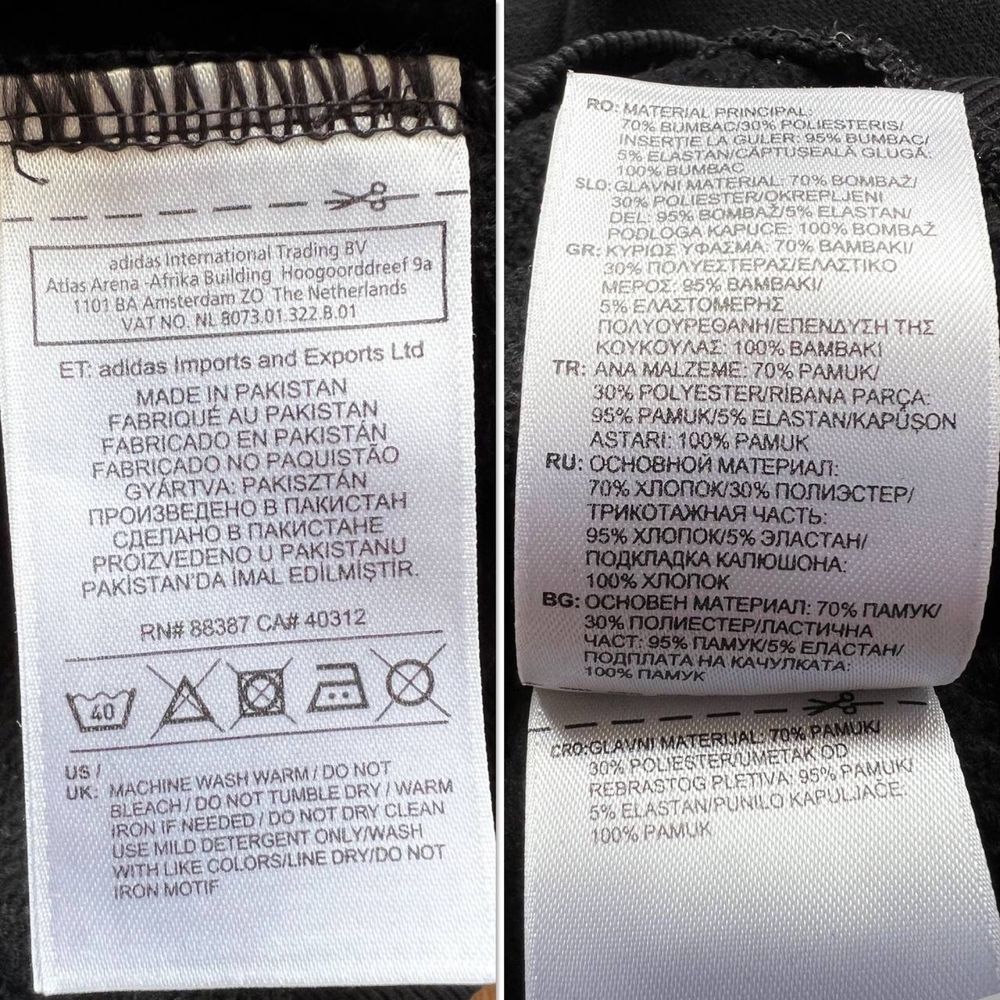 adidas International Trading BV
Atlas Arena -Afrika Building Hoogoorddreef 9a
1101 BA Amsterdam ZO The Netherlands
VAT NO. NL 8073.01.322.B.01
ET: adidas Imports and Exports Ltd
MADE IN PAKISTAN
FABRIQUÉ AU PAKISTAN
FABRICADO EN PAKISTÁN
FABRICADO NO PAQUISTÃO
GYÁRTVA: PAKISZTÁN
ПРОИЗВЕДЕНО В ПАКИСТАН
СДЕЛАНО В ПАКИСТАНЕ
PROIZVEDENO U PAKISTANU
PAKİSTAN'DA İMAL EDİLMİŞTİR.
RN# 88387 CA# 40312
40
US /
UK: MACHINE WASH WARM / DO NOT
BLEACH / DO NOT TUMBLE DRY / WARM
IRON IF NEEDED / DO NOT DRY CLEAN
USE MILD DETERGENT ONLY/WASH
WITH LIKE COLORS/LINE DRY/DO NOT
IRON MOTIF
RO: MATERIAL PRINCIPAL:
70% BUMBAC/30% POLIESTERIS/
INSERŢIE LA GULER: 95% BUMBAC/
5% ELASTAN/CĂPTUSEALĂ GLUGĂ:
100% BUMBAC
SLO: GLAVNI MATERIAL: 70% BOMBAŽ/
30% POLIESTER/OKREPLJENI
DEL: 95% BOMBAŽ/5% ELASTAN/
PODLOGA KAPUCE: 100% BOMBAŽ
GR: ΚΥΡΙΟΣ ΥΦΑΣΜΑ: 70% ΒΑΜΒΑΚΙ/
30% ΠΟΛΥΕΣΤΕΡΑΣ/ΕΛΑΣΤΙΚΟ
ΜΕΡΟΣ: 95% ΒΑΜΒΑΚΙ/
5% ΕΛΑΣΤΟΜΕΡΗΣ
ΠΟΛΥΟΥΡΕΘΑΝΗ/ΕΠΕΝΔΥΣΗ ΤΗΣ
ΚΟΥΚΟΥΛΑΣ: 100% ΒΑΜΒΑΚΙ
TR: ANA MALZEME: 70% PAMUK/
30% POLYESTER/RIBANA PARÇA:
95% PAMUK/5% ELASTAN/KAPÜŞON
ASTARI: 100% PAMUK
RU: ОСНОВНОЙ МАТЕРИАЛ:
70% ХЛОПОК/30% ПОЛИЭСТЕР/
ТРИКОТАЖНАЯ ЧАСТЬ:
95% ХЛОПОК/5% ЭЛАСТАН/
ПОДКЛАДКА КАПЮШОНА:
100% ХЛОПОК
BG: ОСНОВЕН МАТЕРИАЛ: 70% ПАМУК/
30% ПОЛИЕСТЕР/ЛАСТИЧНА
ЧАСТ: 95% ПАМУК/5% ЕЛАСТАН/
ПОДПЛАТА НА КАЧУЛКАТА:
100% ПАМУК
CRO: GLAVNI MATERIJAL: 70% PAMUK/
30% POLIESTER/UMETAK OD
REBRASTOG PLETIVA: 95% PAMUK/
5% ELASTAN/PUNILO KAPULJAČE:
100% PAMUK